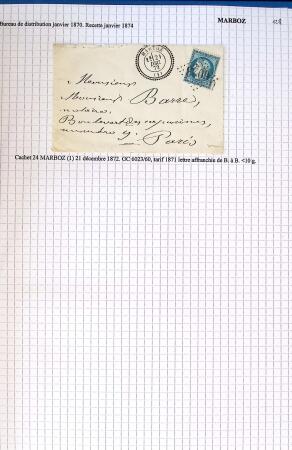 Bureau de distribution janvier 1870. Recette janvier 1874
MARBOZ
MARBOZ
21
DEC
72
(1)
Monsieur
Monsieur Barre,
notaire,
Boulevart des capucines,
numéro 9.
Paris
Cachet 24 MARBOZ (1) 21 décembre 1872. GC 6023/60, tarif 1871 lettre affranchie de B. à B. <10 g.